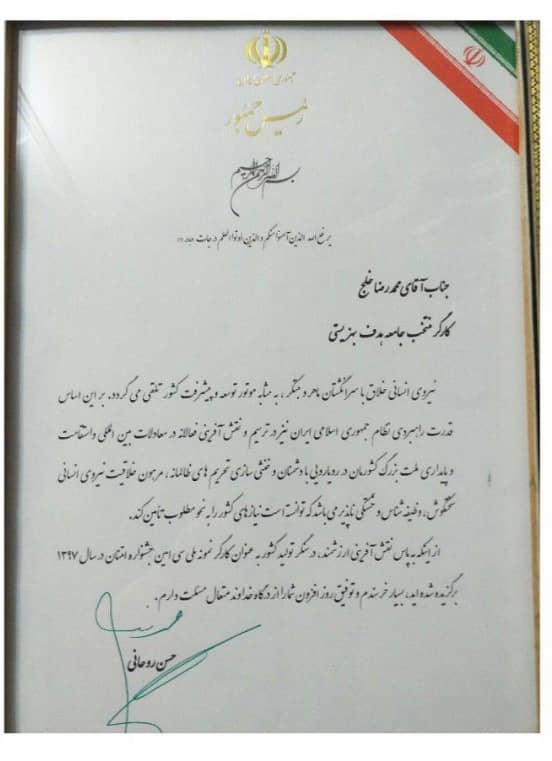 جمهوری اسلامی ایران
رئیس جمهور
بسم الله الرحمن الرحیم
یرفع الله الذین آمنوا منکم والذین اوتوا العلم درجات
جناب آقای محمد رضا خلج
کارگر منتخب جامعه هدف بهزیستی
نیروی انسانی خلاق با سرانگشتان ماهر و جستجوگر، به مثابه موتور توسعه و پیشرفت کشور تلقی می گردد. بر این اساس
قدرت راهبردی نظام جمهوری اسلامی ایران نیز در ترسیم و نقش آفرینی فعالانه در معادلات بین المللی و استقامت
و پایداری ملت بزرگ کشورمان در رویارویی با دشمنان و خنثی سازی تحریم های ظالمانه، مرهون خلاقیت نیروی انسانی
سختکوش، وظیفه شناس و خستگی ناپذیر می باشد که توانسته است نیازهای کشور را به نحو مطلوب تامین کند.
از اینکه به پاس نقش آفرینی ارزشمند، در سنگر تولید کشور به عنوان کارگر نمونه ملی سی امین جشنواره امتنان در سال ۱۳۹۷
برگزیده شده اید، بسیار خرسندم و توفیق روز افزون شما را از درگاه خداوند متعال مسئلت دارم.
حسن روحانی